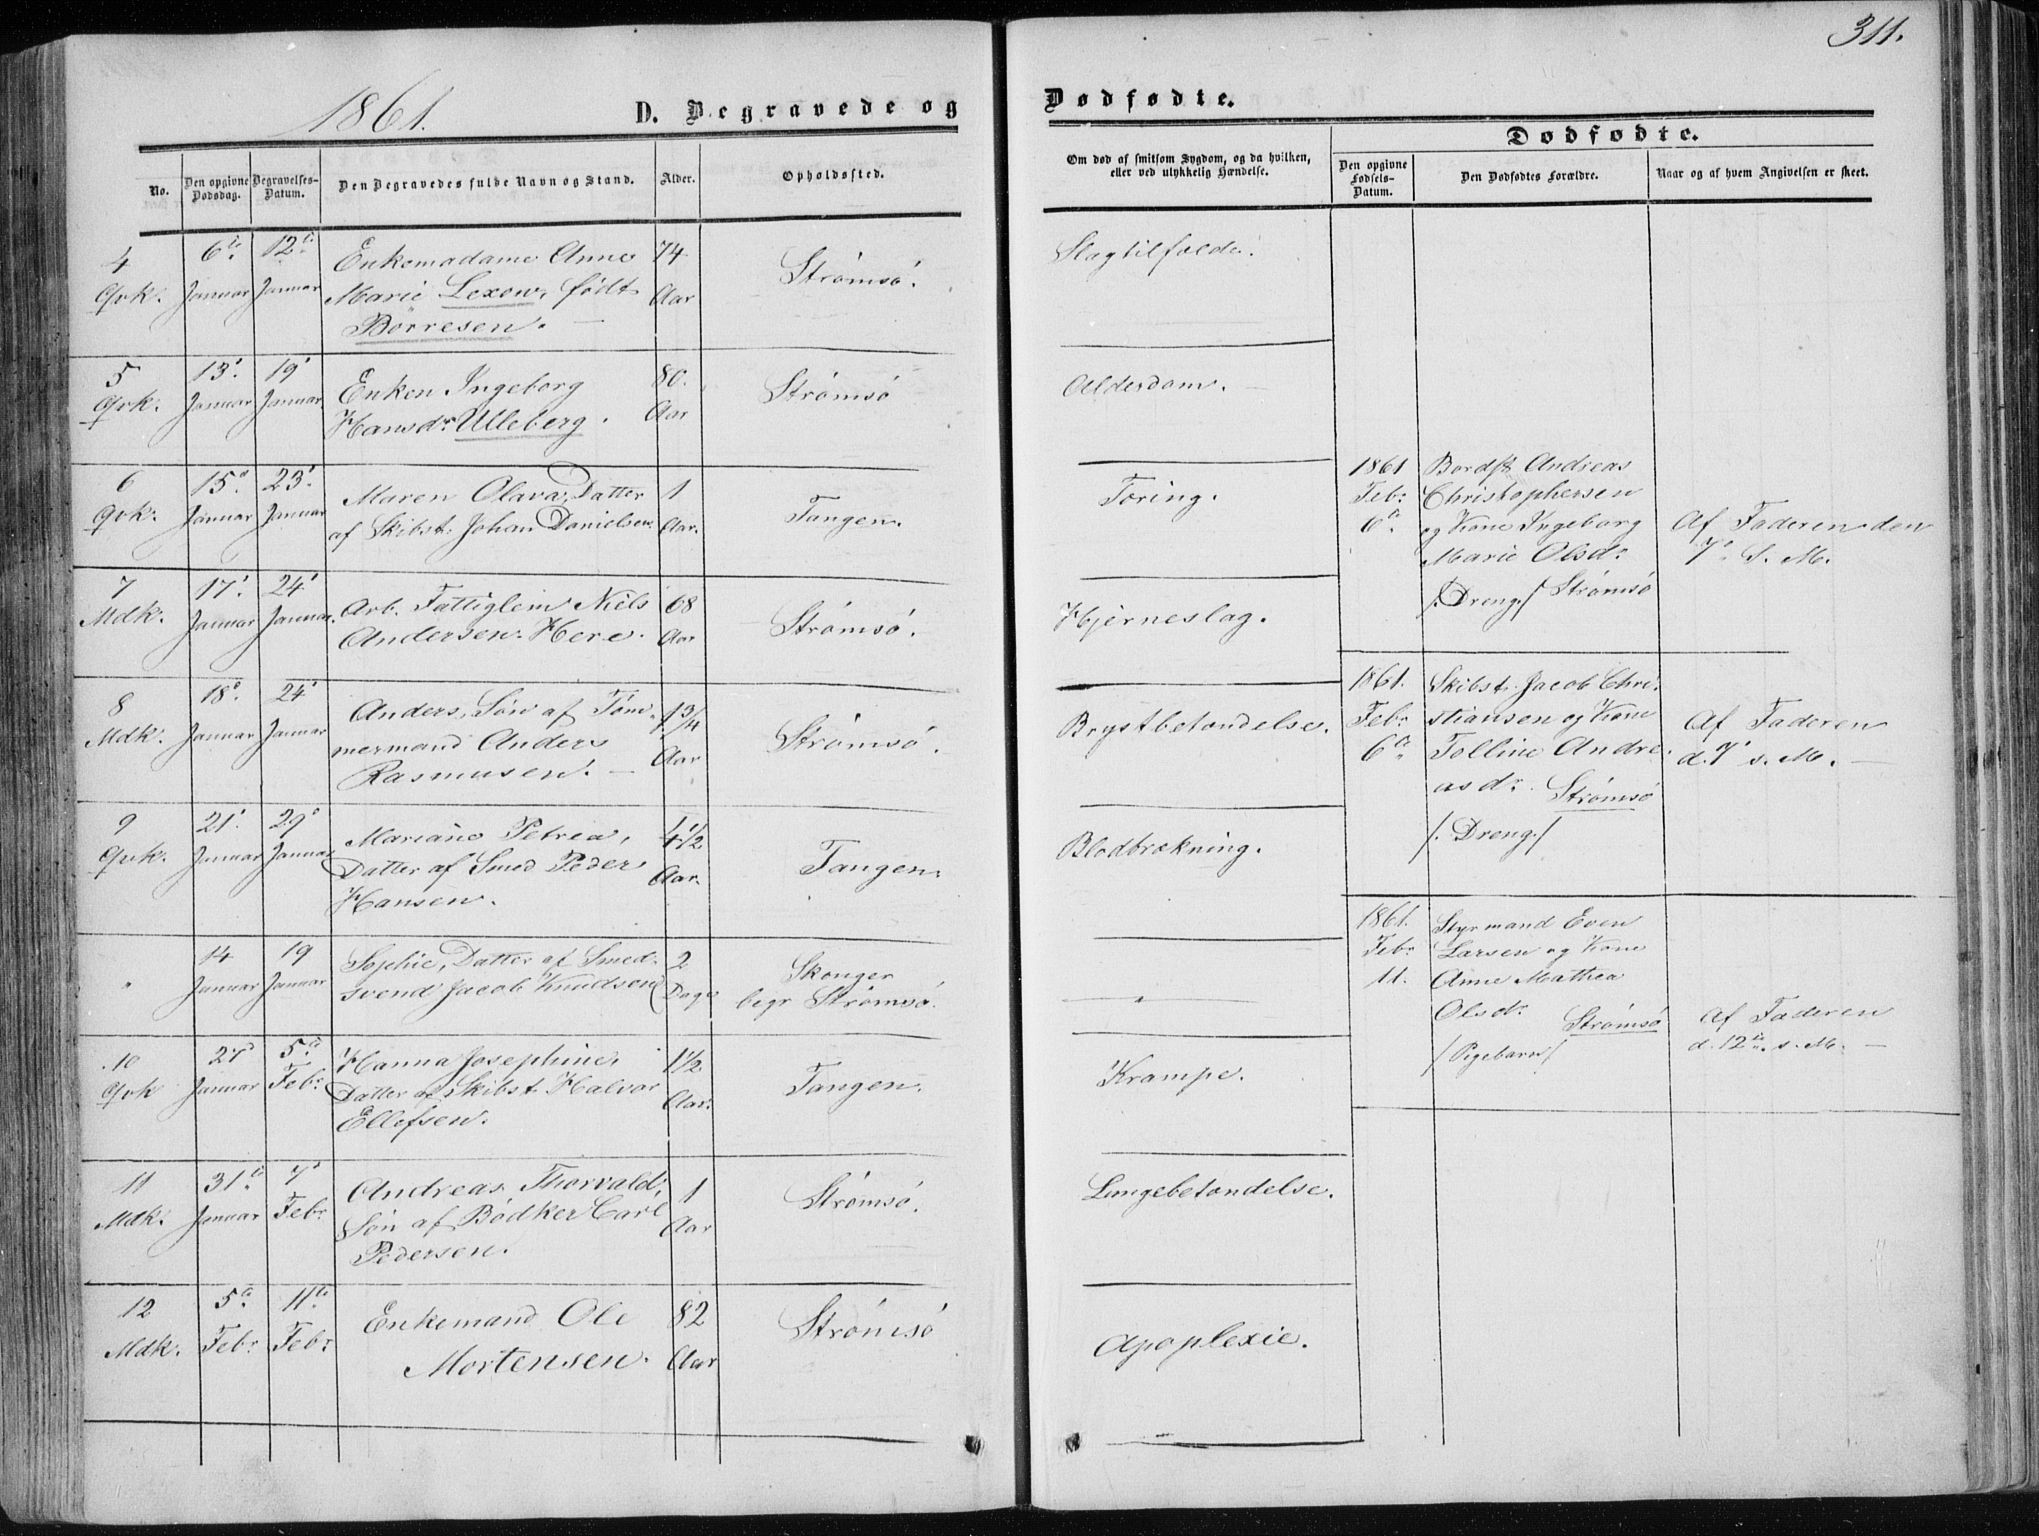 311.
1861.
D. Begravede og
Dødfødte.
No.
Den opgivne Dødsdag.
Begravelses-Datum.
Den Begravedes fulde Navn og Stand.
Alder.
Opholdssted.
Om død af smitsom Sygdom, og da hvilken,
eller ved ulykkelig Hændelse.
Dødfødte.
Den opgivne Fødsels-Datum.
Den Dødfødtes Forældre.
Naar og af hvem Angivelsen er skeet.
4 Qvk.
6te Januar
12te Januar
Enkemadame Anne
Marie Lexow, født
Börresen.
74 Aar
Strømsö.
Slagtilfælde.
5 Qvk.
13. Januar
19 Januar
Enken Ingeborg
Hansdr. Ulleberg.
80. Aar
Strømsö
Alderdom.
6 Qvk.
15. Januar
23. Januar
Maren Olava, Datter
af Skibst. Johan Danielsen
1 Aar.
Tangen.
Tæring.
7 Mdk.
17. Januar
24 Januar.
Arb. Fattiglem Niels
Andersen Here.
68 Aar
Strømsö.
Hjerneslag.
8 Mdk.
18. Januar
24 Januar
Anders, Søn af Töm-
mermand Anders
Rasmusen.
1 3/4 Aar
Strømsö.
Brystbetændelse.
9 Qvk.
21. Januar
29 Januar
Mariane Petrea,
Datter af Smed Peder
Hansen.
4 1/2 Aar.
Tangen.
Blodbrækning.
"
14 Januar
19 Januar
Sophie, Datter af Smed-
svend Jacob Knudsen
2 Dage
Skoger
begr Strömsö.
"
10 Qvk
27 Januar
5te Febr
Hanna Josephine,
Datter af Skibst. Halvor
Ellefsen.
1 1/2 Aar.
Tangen.
Krampe.
11 Mdk.
31te Januar
7 Febr
Andreas Thorvald,
Søn af Bödker Carl
Pedersen.
1 Aar
Strømsö.
Lungebetændelse.
12 Mdk.
5te Febr
11te Febr
Enkemand Ole
Mortensen.
82 Aar
Strømsö
Apoplexie.
1861 Febr 6te
Bordsk Andreas
Christophersen
og Kone Ingeborg
Marie Olsdr
/: Dreng :/ Strømsö
Af Faderen den
7 s. M.
1861. Febr 6te
Skibst. Jacob Chri-
stiansen og Kone
Tolline Andre-
asdr. Strømsö
/: Dreng :/
Af Faderen
d. 7 s. M.
1861. Febr 11.
Styrmand Even
Larsen og Kone
Anne Mathea
Olsdr. Strømsö
/ Pigebarn /
Af Faderen
d. 12te s. M.